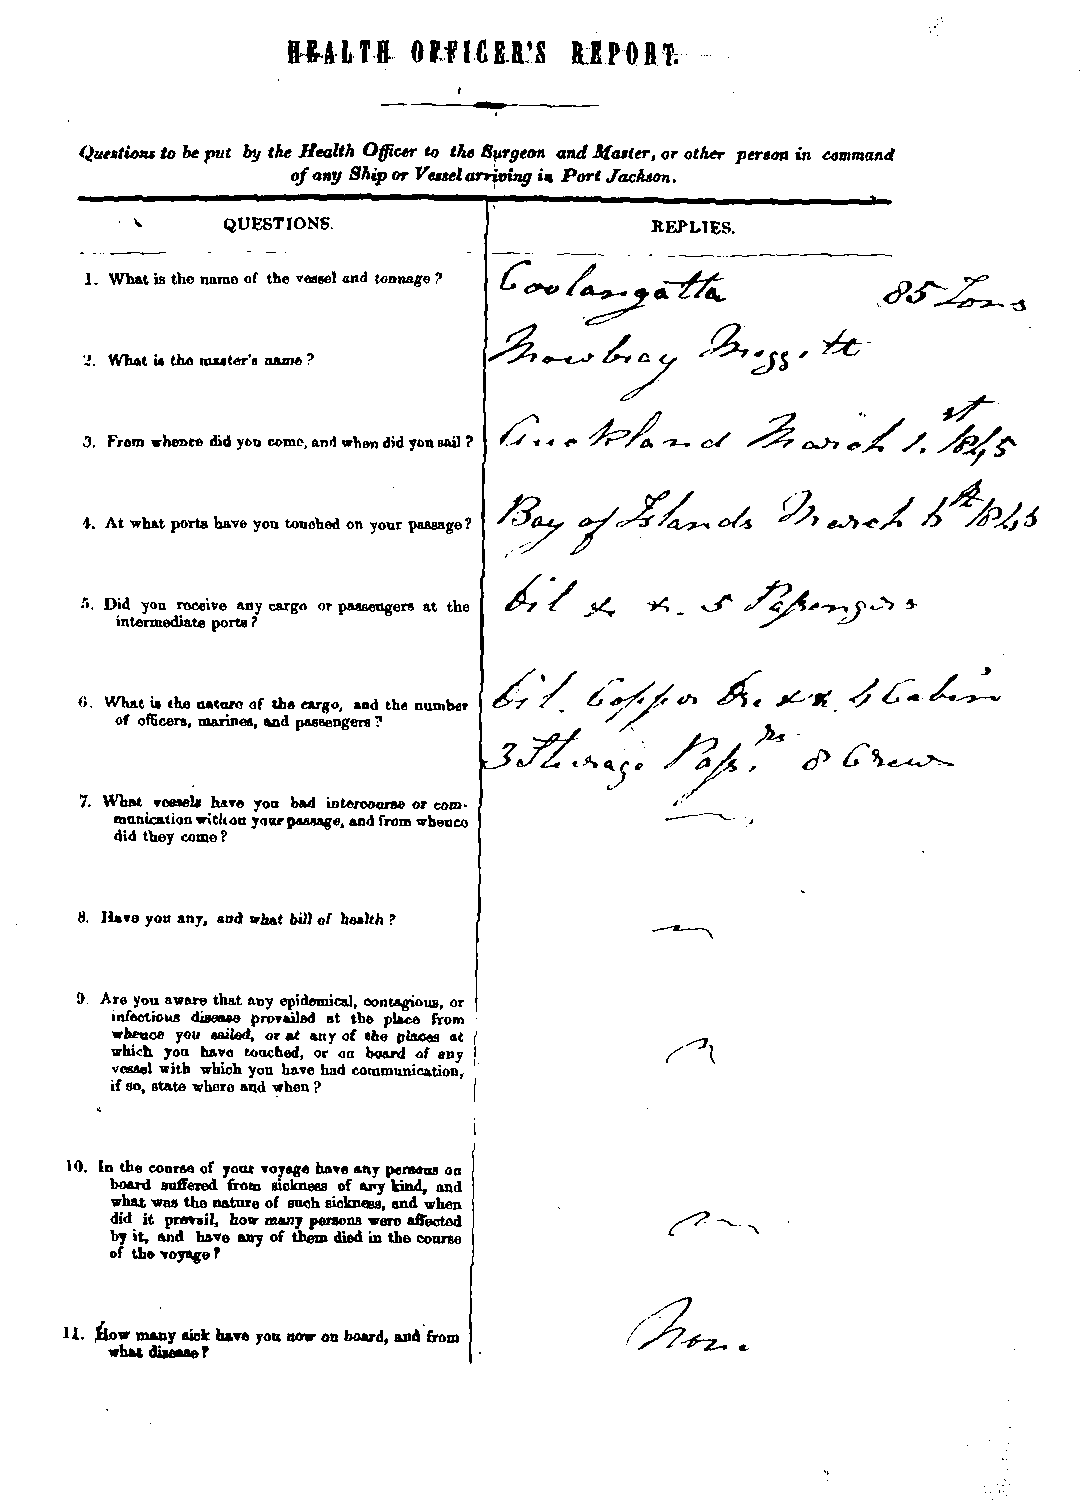 HEALTH OFFICER'S REPORT.
Questions to be put by the Health Officer to the Surgeon and Master, or other person in command
of any Ship or Vessel arriving in Port Jackson.
QUESTIONS.
REPLIES.
1. What is the name of the vessel and tonnage?
Coolangatta 85 Tons
2. What is the master's name?
Mowbray Muggett
3. From whence did you come, and when did you sail?
Auckland March 1.st 1845
4. At what ports have you touched on your passage?
Bay of Islands March 1845
5. Did you receive any cargo or passengers at the
intermediate ports?
Oil & &. 5 Passengers
6. What is the nature of the cargo, and the number
of officers, marines, and passengers?
Oil. Copper Ore &&. 6 Cabin
3 Steerage Pass.rs 8 Crew
7. What vessels have you had intercourse or com-
munication with on your passage, and from whence
did they come?
8. Have you any, and what bill of health?
9. Are you aware that any epidemical, contagious, or
infectious disease prevailed at the place from
whence you sailed, or at any of the places at
which you have touched, or on board of any
vessel with which you have had communication,
if so, state where and when?
10. In the course of your voyage have any persons on
board suffered from sickness of any kind, and
what was the nature of such sickness, and when
did it prevail, how many persons were affected
by it, and have any of them died in the course
of the voyage?
11. How many sick have you now on board, and from
what disease?
None